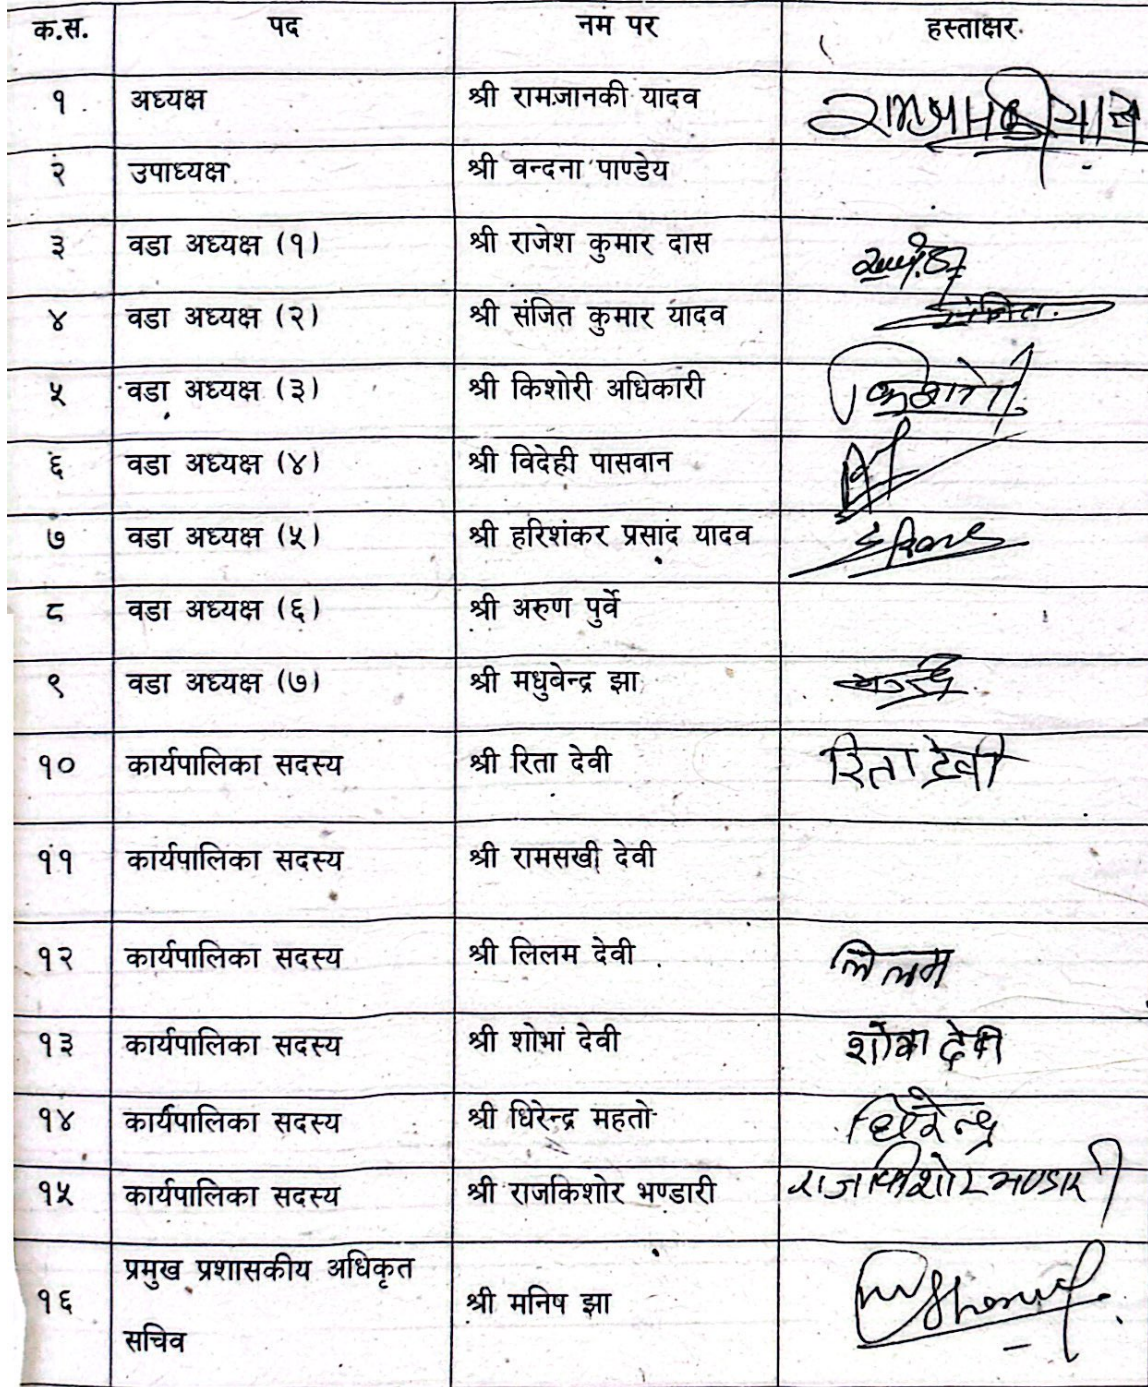 क.स. पद नम पर हस्ताक्षर
१ अध्यक्ष श्री रामजानकी यादव
२ उपाध्यक्ष श्री वन्दना पाण्डेय
३ वडा अध्यक्ष (१) श्री राजेश कुमार दास
४ वडा अध्यक्ष (२) श्री संजित कुमार यादव
५ वडा अध्यक्ष (३) श्री किशोरी अधिकारी
६ वडा अध्यक्ष (४) श्री विदेही पासवान
७ वडा अध्यक्ष (५) श्री हरिशंकर प्रसाद यादव
८ वडा अध्यक्ष (६) श्री अरुण पुर्वे
९ वडा अध्यक्ष (७) श्री मधुवेन्द्र झा
१० कार्यपालिका सदस्य श्री रिता देवी रिता देवी
११ कार्यपालिका सदस्य श्री रामसखी देवी
१२ कार्यपालिका सदस्य श्री लिलम देवी लिलम
१३ कार्यपालिका सदस्य श्री शोभा देवी शोभा देवी
१४ कार्यपालिका सदस्य श्री धिरेन्द्र महतो धिरेन्द्र
१५ कार्यपालिका सदस्य श्री राजकिशोर भण्डारी राजकिशोर भण्डारी
प्रमुख प्रशासकीय अधिकृत
१६ श्री मनिष झा
सचिव